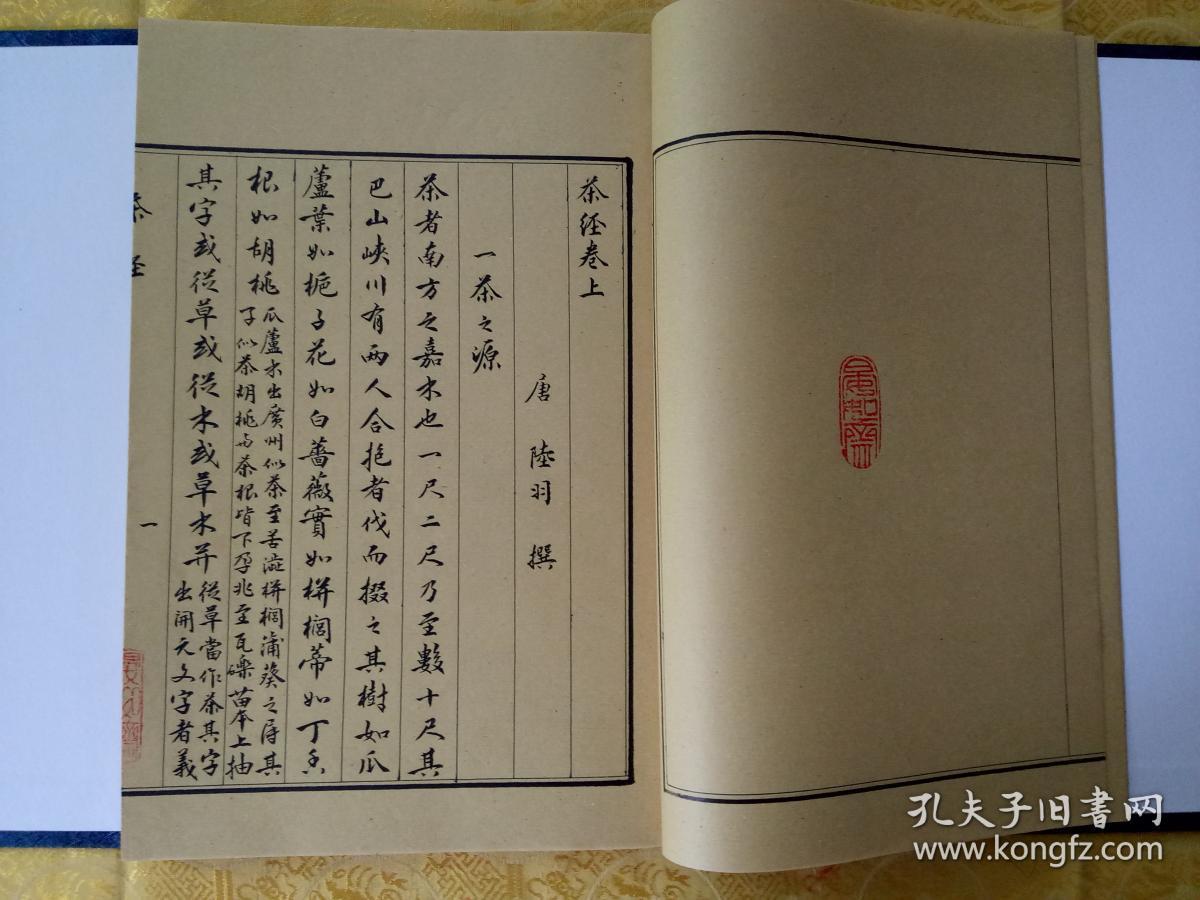 茶经卷上
唐 陸羽 撰
一茶之源
茶者南方之嘉木也一尺二尺乃至數十尺其
巴山峽川有两人合抱者伐而掇之其樹如瓜
蘆葉如梔子花如白薔薇實如栟櫚蒂如丁香
根如胡桃
瓜蘆木出廣州似茶至苦澁栟櫚蒲葵之屬其
子似茶胡桃与茶根皆下孕兆至瓦礫苗木上抽
其字或從草或從木或草木并
從草當作茶其字
出開元文字者義
茶经
一
孔夫子旧書网
www.kongfz.com